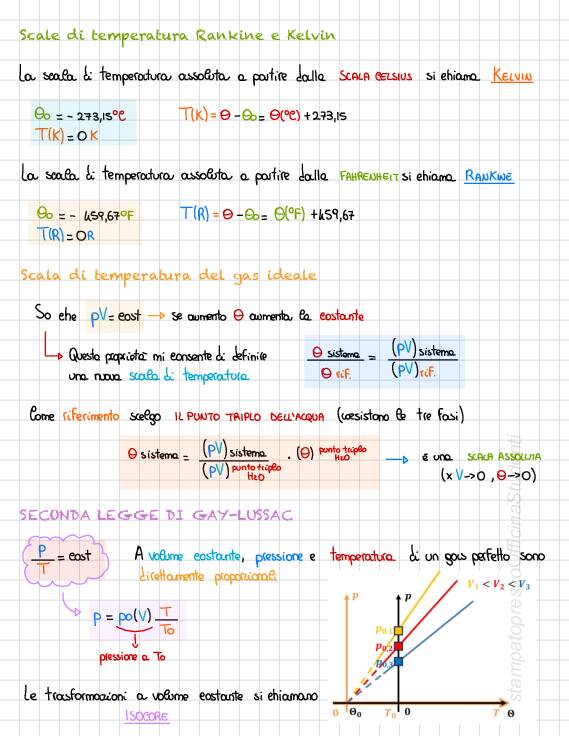 Scale di temperatura Rankine e Kelvin
La scala di temperatura assoluta a partire dalla SCALA CELSIUS si chiama KELVIN
θ₀ = - 273,15°C T(K) = θ - θ₀ = θ(°C) + 273,15
T(K) = 0 K
La scala di temperatura assoluta a partire dalla FAHRENHEIT si chiama RANKINE
θ₀ = - 459,67°F T(R) = θ - θ₀ = θ(°F) + 459,67
T(R) = 0R
Scala di temperatura del gas ideale
So che pV = cost → se aumento θ aumenta la costante
Questa proprietà mi consente di definire
una nuova scala di temperatura
θ sistema / θ rif. = (pV) sistema / (pV) rif.
Come riferimento scelgo IL PUNTO TRIPLO DELL'ACQUA (coesistono le tre fasi)
θ sistema = (pV) sistema / (pV) punto triplo H2O · (θ) punto triplo H2O → è una SCALA ASSOLUTA
(x V→0 , θ→0)
SECONDA LEGGE DI GAY-LUSSAC
P / T = cost A volume costante, pressione e temperatura di un gas perfetto sono
direttamente proporzionali
p = po(V) T / To
pressione a To
Le trasformazioni a volume costante si chiamano
ISOCORE
p p V₁ < V₂ < V₃
p₀,₁
p₀,₂
p₀,₃
0 Θ₀ T₀ 0 T Θ